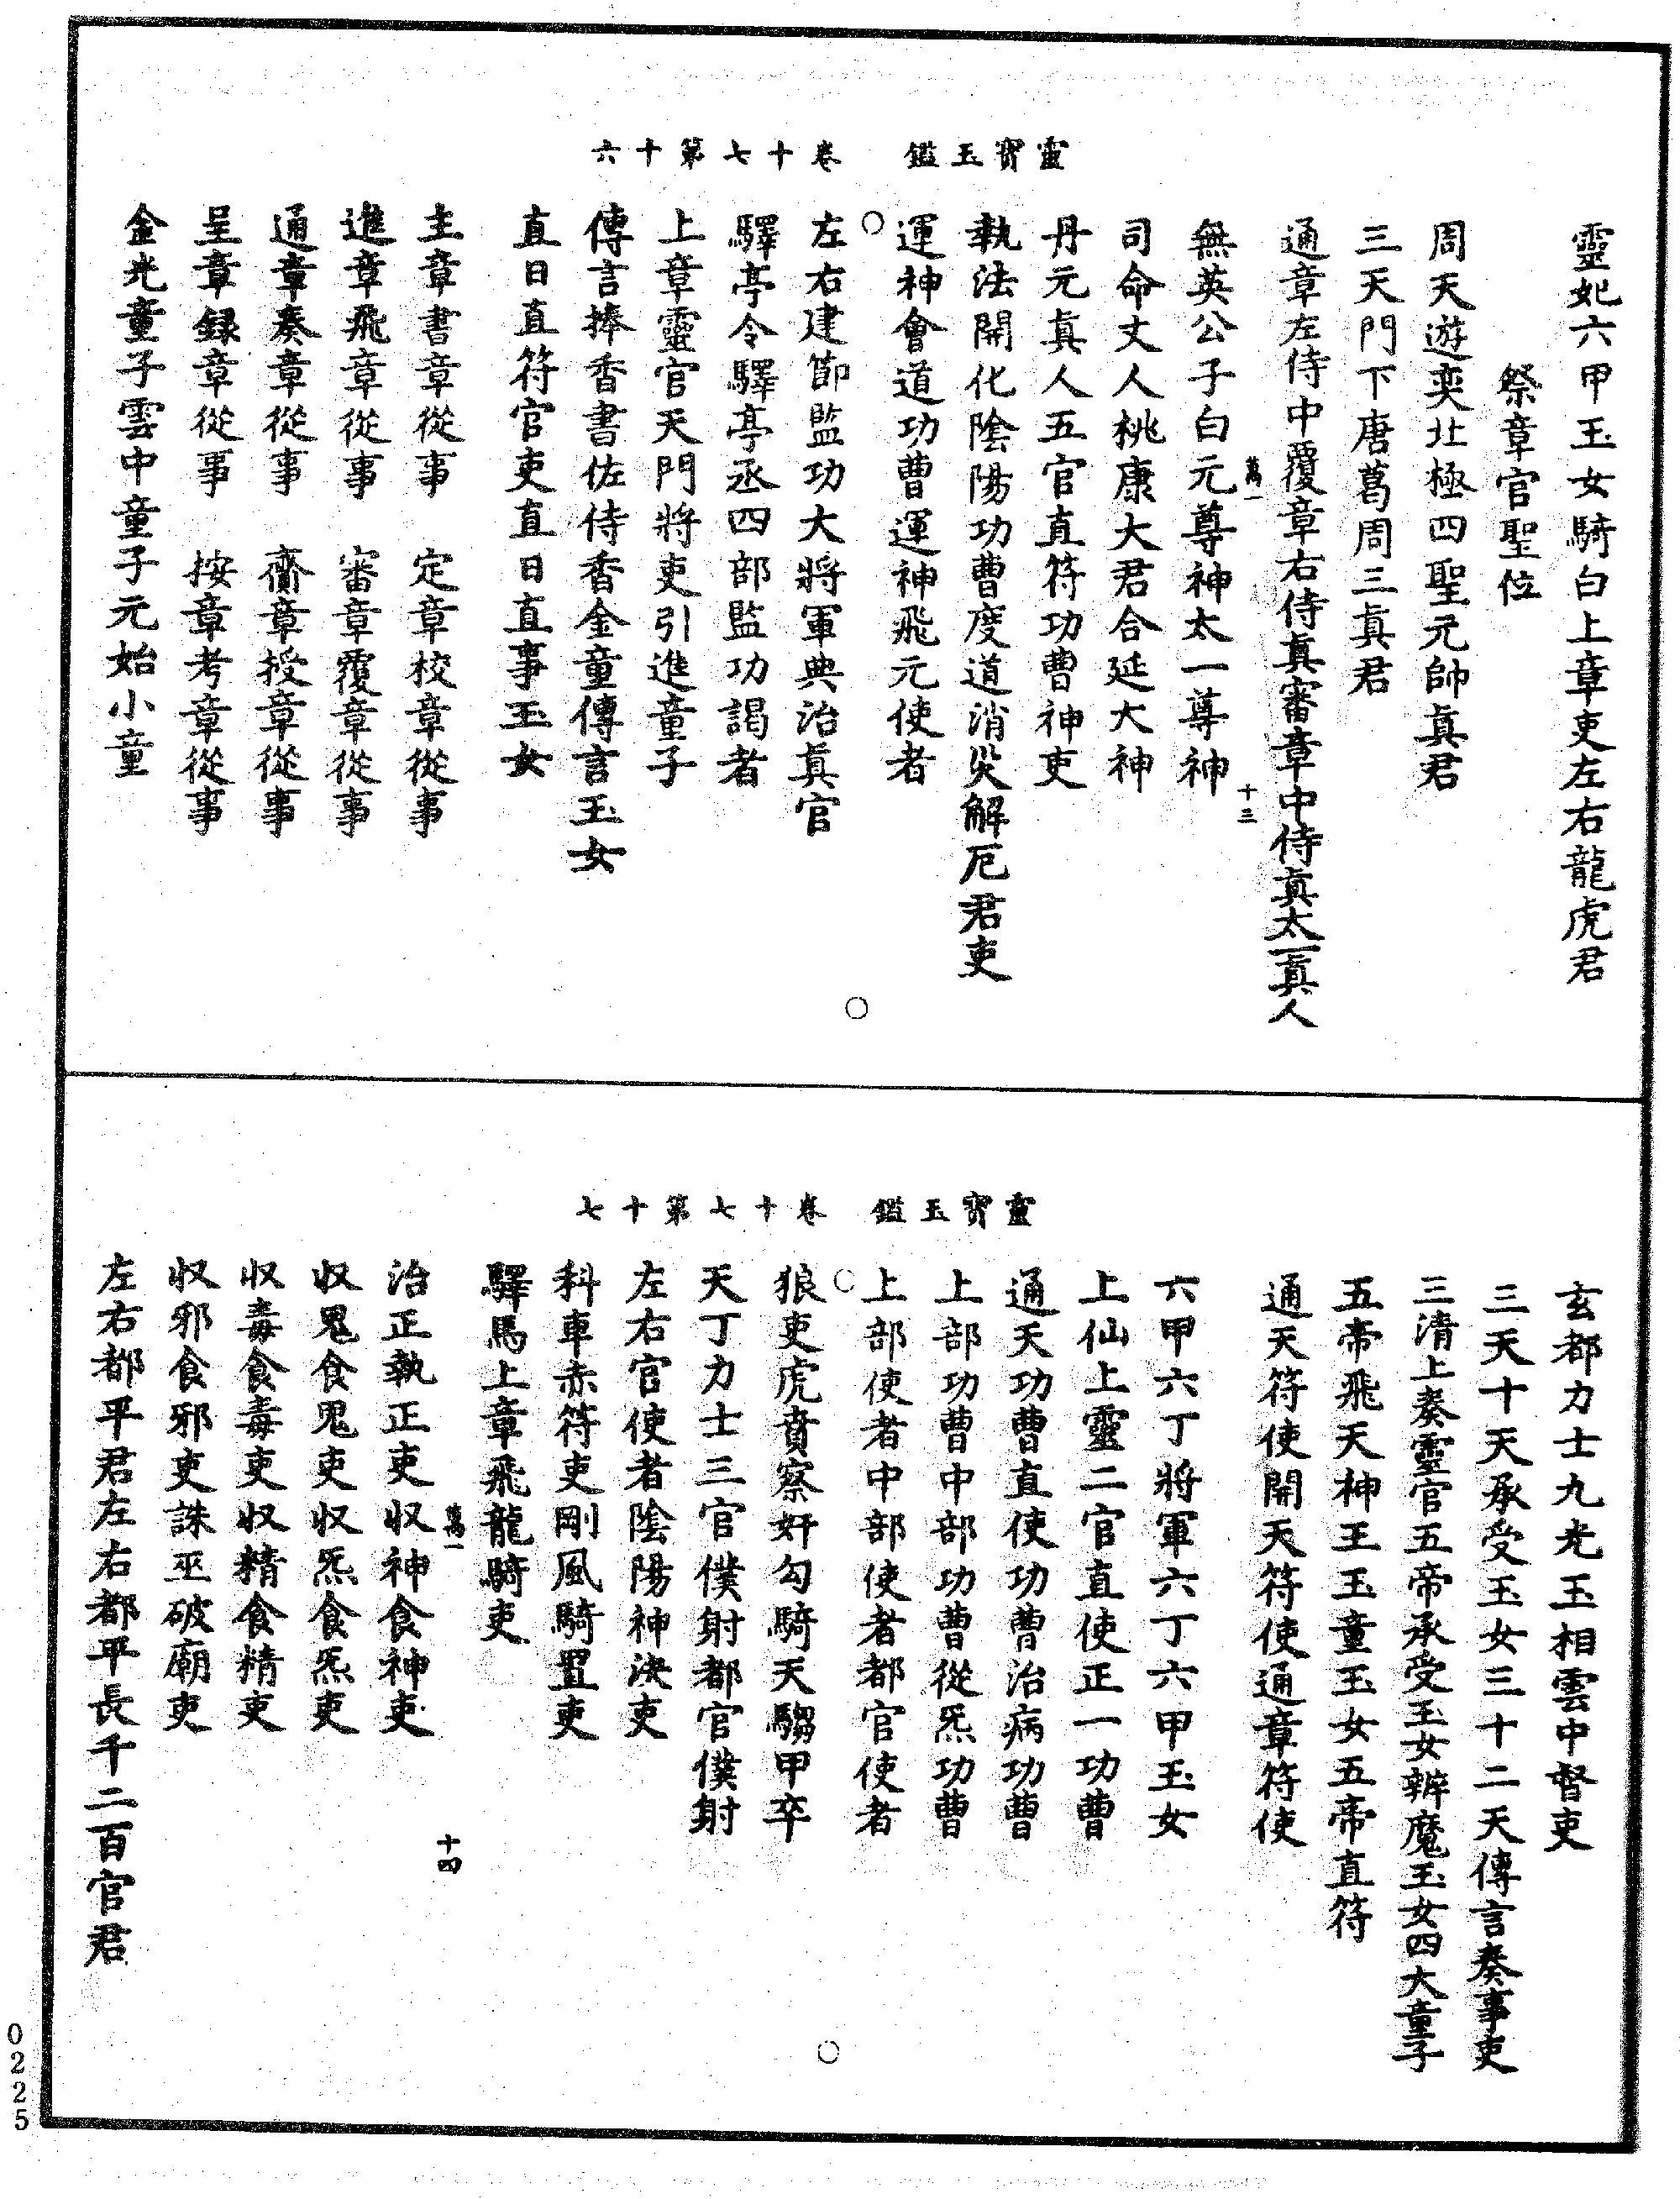 靈寶玉鑑　卷十七第十六
靈妃六甲玉女騎白上章吏左右龍虎君
祭章官聖位
周天遊奕北極四聖元帥眞君
三天門下唐葛周三眞君
通章左侍中覆章右侍眞審章中侍眞太一眞人
萬一　十三
無英公子白元尊神太一尊神
司命丈人桃康大君合延大神
丹元眞人五官直符功曹神吏
執法開化陰陽功曹度道消災解厄君吏
運神會道功曹運神飛元使者
左右建節監功大將軍典治眞官
驛亭令驛亭丞四部監功謁者
上章靈官天門將吏引進童子
傳言捧香書佐侍香金童傳言玉女
直日直符官吏直日直事玉女
主章書章從事　定章校章從事
進章飛章從事　審章覆章從事
通章奏章從事　齎章授章從事
呈章録章從事　按章考章從事
金光童子雲中童子元始小童
靈寶玉鑑　卷十七第十七
玄都力士九光玉相雲中督吏
三天十天承受玉女三十二天傳言奏事吏
三清上奏靈官五帝承受玉女辯魔玉女四大童子
五帝飛天神王玉童玉女五帝直符
通天符使開天符使通章符使
六甲六丁將軍六丁六甲玉女
上仙上靈二官直使正一功曹
通天功曹直使功曹治病功曹
上部功曹中部功曹從炁功曹
上部使者中部使者都官使者
狼吏虎賁察奸勾騎天騶甲卒
天丁力士三官僕射都官僕射
左右官使者陰陽神決吏
科車赤符吏剛風騎置吏
驛馬上章飛龍騎吏
萬一　十四
治正執正吏収神食神吏
収鬼食鬼吏収炁食炁吏
収毒食毒吏収精食精吏
収邪食邪吏誅巫破廟吏
左右都平君左右都平長千二百官君
0225